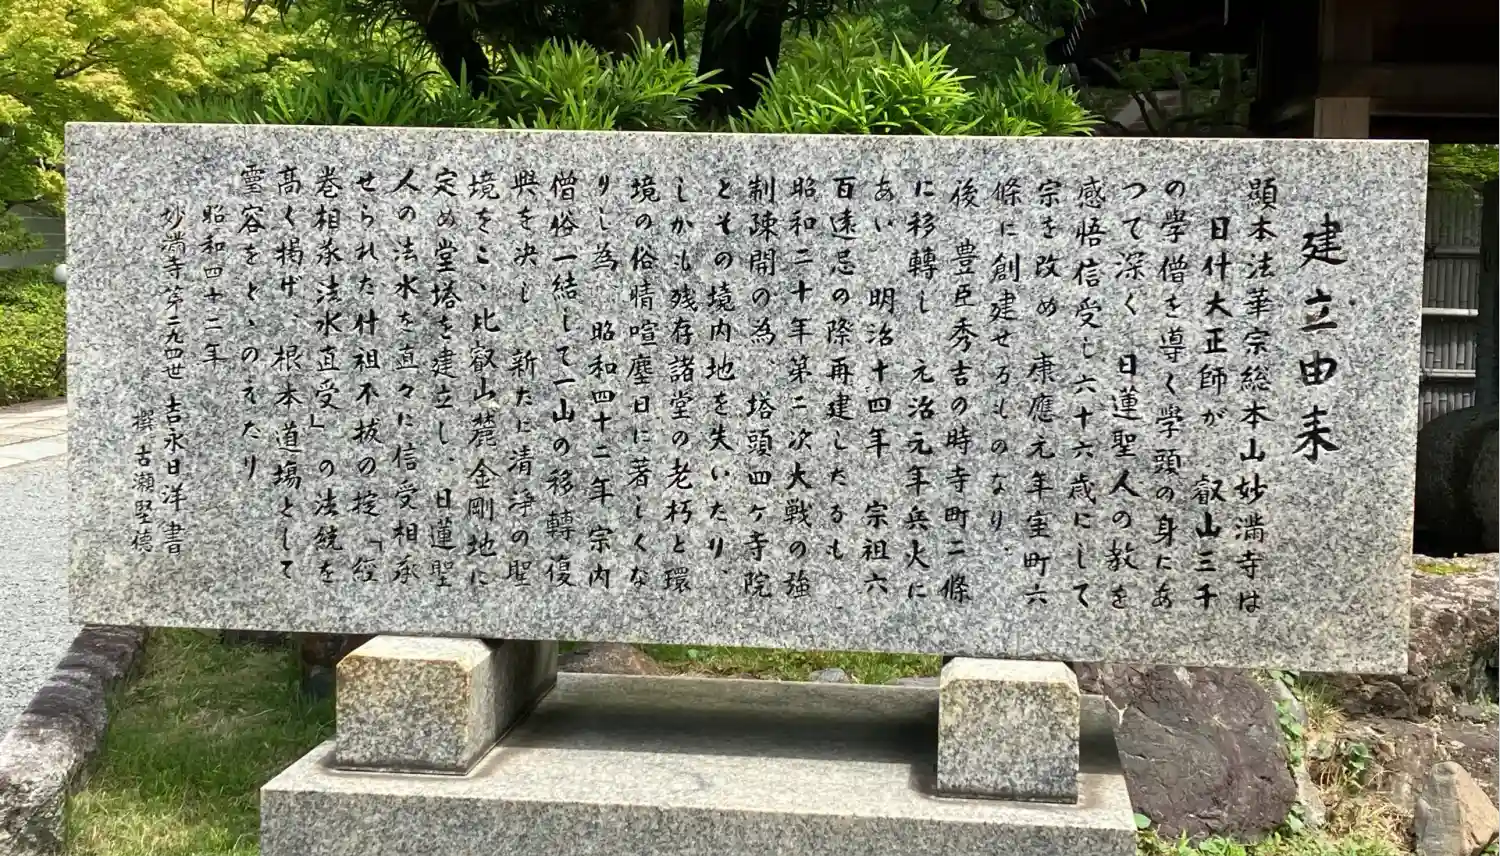 建立由来
顕本法華宗総本山妙満寺は
日什大正師が 叡山三千
の學僧を導く學頭の身にあ
つて深く 日蓮聖人の教を
感悟信受し六十六歳にして
宗を改め 康應元年室町六
條に創建せるものなり、
後 豊臣秀吉の時寺町二條
に移轉し 元治元年兵火に
あい 明治十四年 宗祖六
百遠忌の際再建したるも
昭和二十年第二次大戦の強
制疎開の為、塔頭四ケ寺院
とその境内地を失いたり、
しかも残存諸堂の老朽と環
境の俗情喧塵日に著しくな
りし為、昭和四十二年 宗内
僧俗一結して一山の移轉復
興を決し 新たに清浄の聖
境をこゝ比叡山麓 金剛地に
定め堂塔を建立し、日蓮聖
人の法水を直々に信受相承
せられた什祖不抜の掟「経
巻相承法水直受」の法統を
高く掲げ、根本道場として
霊容をとゝのえたり
昭和四十二年
妙満寺第二九四世 吉永日洋 書
撰 古瀬堅徳